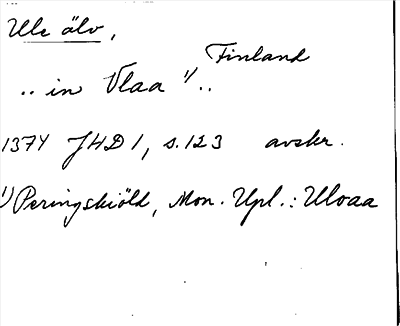 Ule älv,
Finland
.. in Vlaa ¹)..
1374 JHD 1, s. 123 avskr.
¹) Peringskiöld, Mon. Upl.: Uloaa